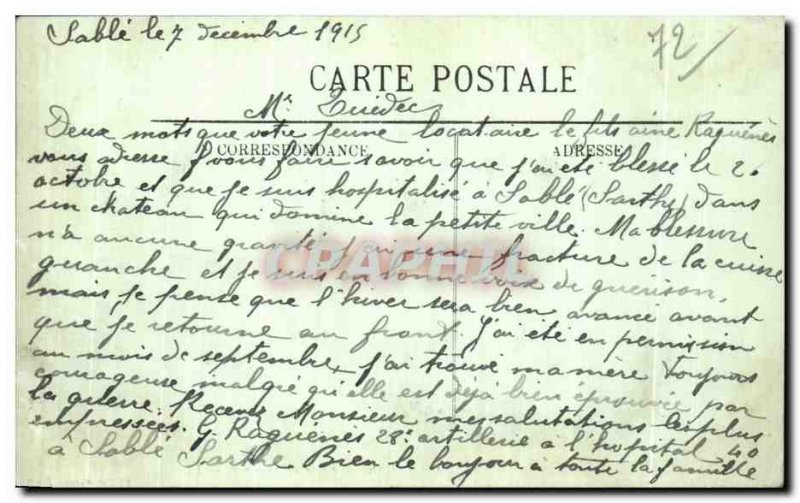 Sablé le 7 décembre 1915
72
CARTE POSTALE
Mr Guédec
Deux mots que votre jeune locataire le fils ainé Raguénès
CORRESPONDANCE ADRESSE
vous adresse p vous faire savoir que j'ai été blessé le 2.
octobre et que je suis hospitalisé à Sablé (Sarthe) dans
un chateau qui domine la petite ville. Ma blessure
n'a aucune gravité, j'ai une fracture de la cuisse
gauche et je suis en bonne voie de guérison,
mais je pense que l'hiver sera bien avancé avant
que je retourne au front. J'ai été en permission
au mois de septembre, j'ai trouvé ma mère toujours
courageuse malgré qu'elle est déjà bien éprouvée par
la guerre. Recevez Monsieur mes salutations les plus
empressées. Raguénès 28e artillerie à l'hopital 40
à Sablé Sarthe Bien le bonjour à toute la famille
CPAPHIL